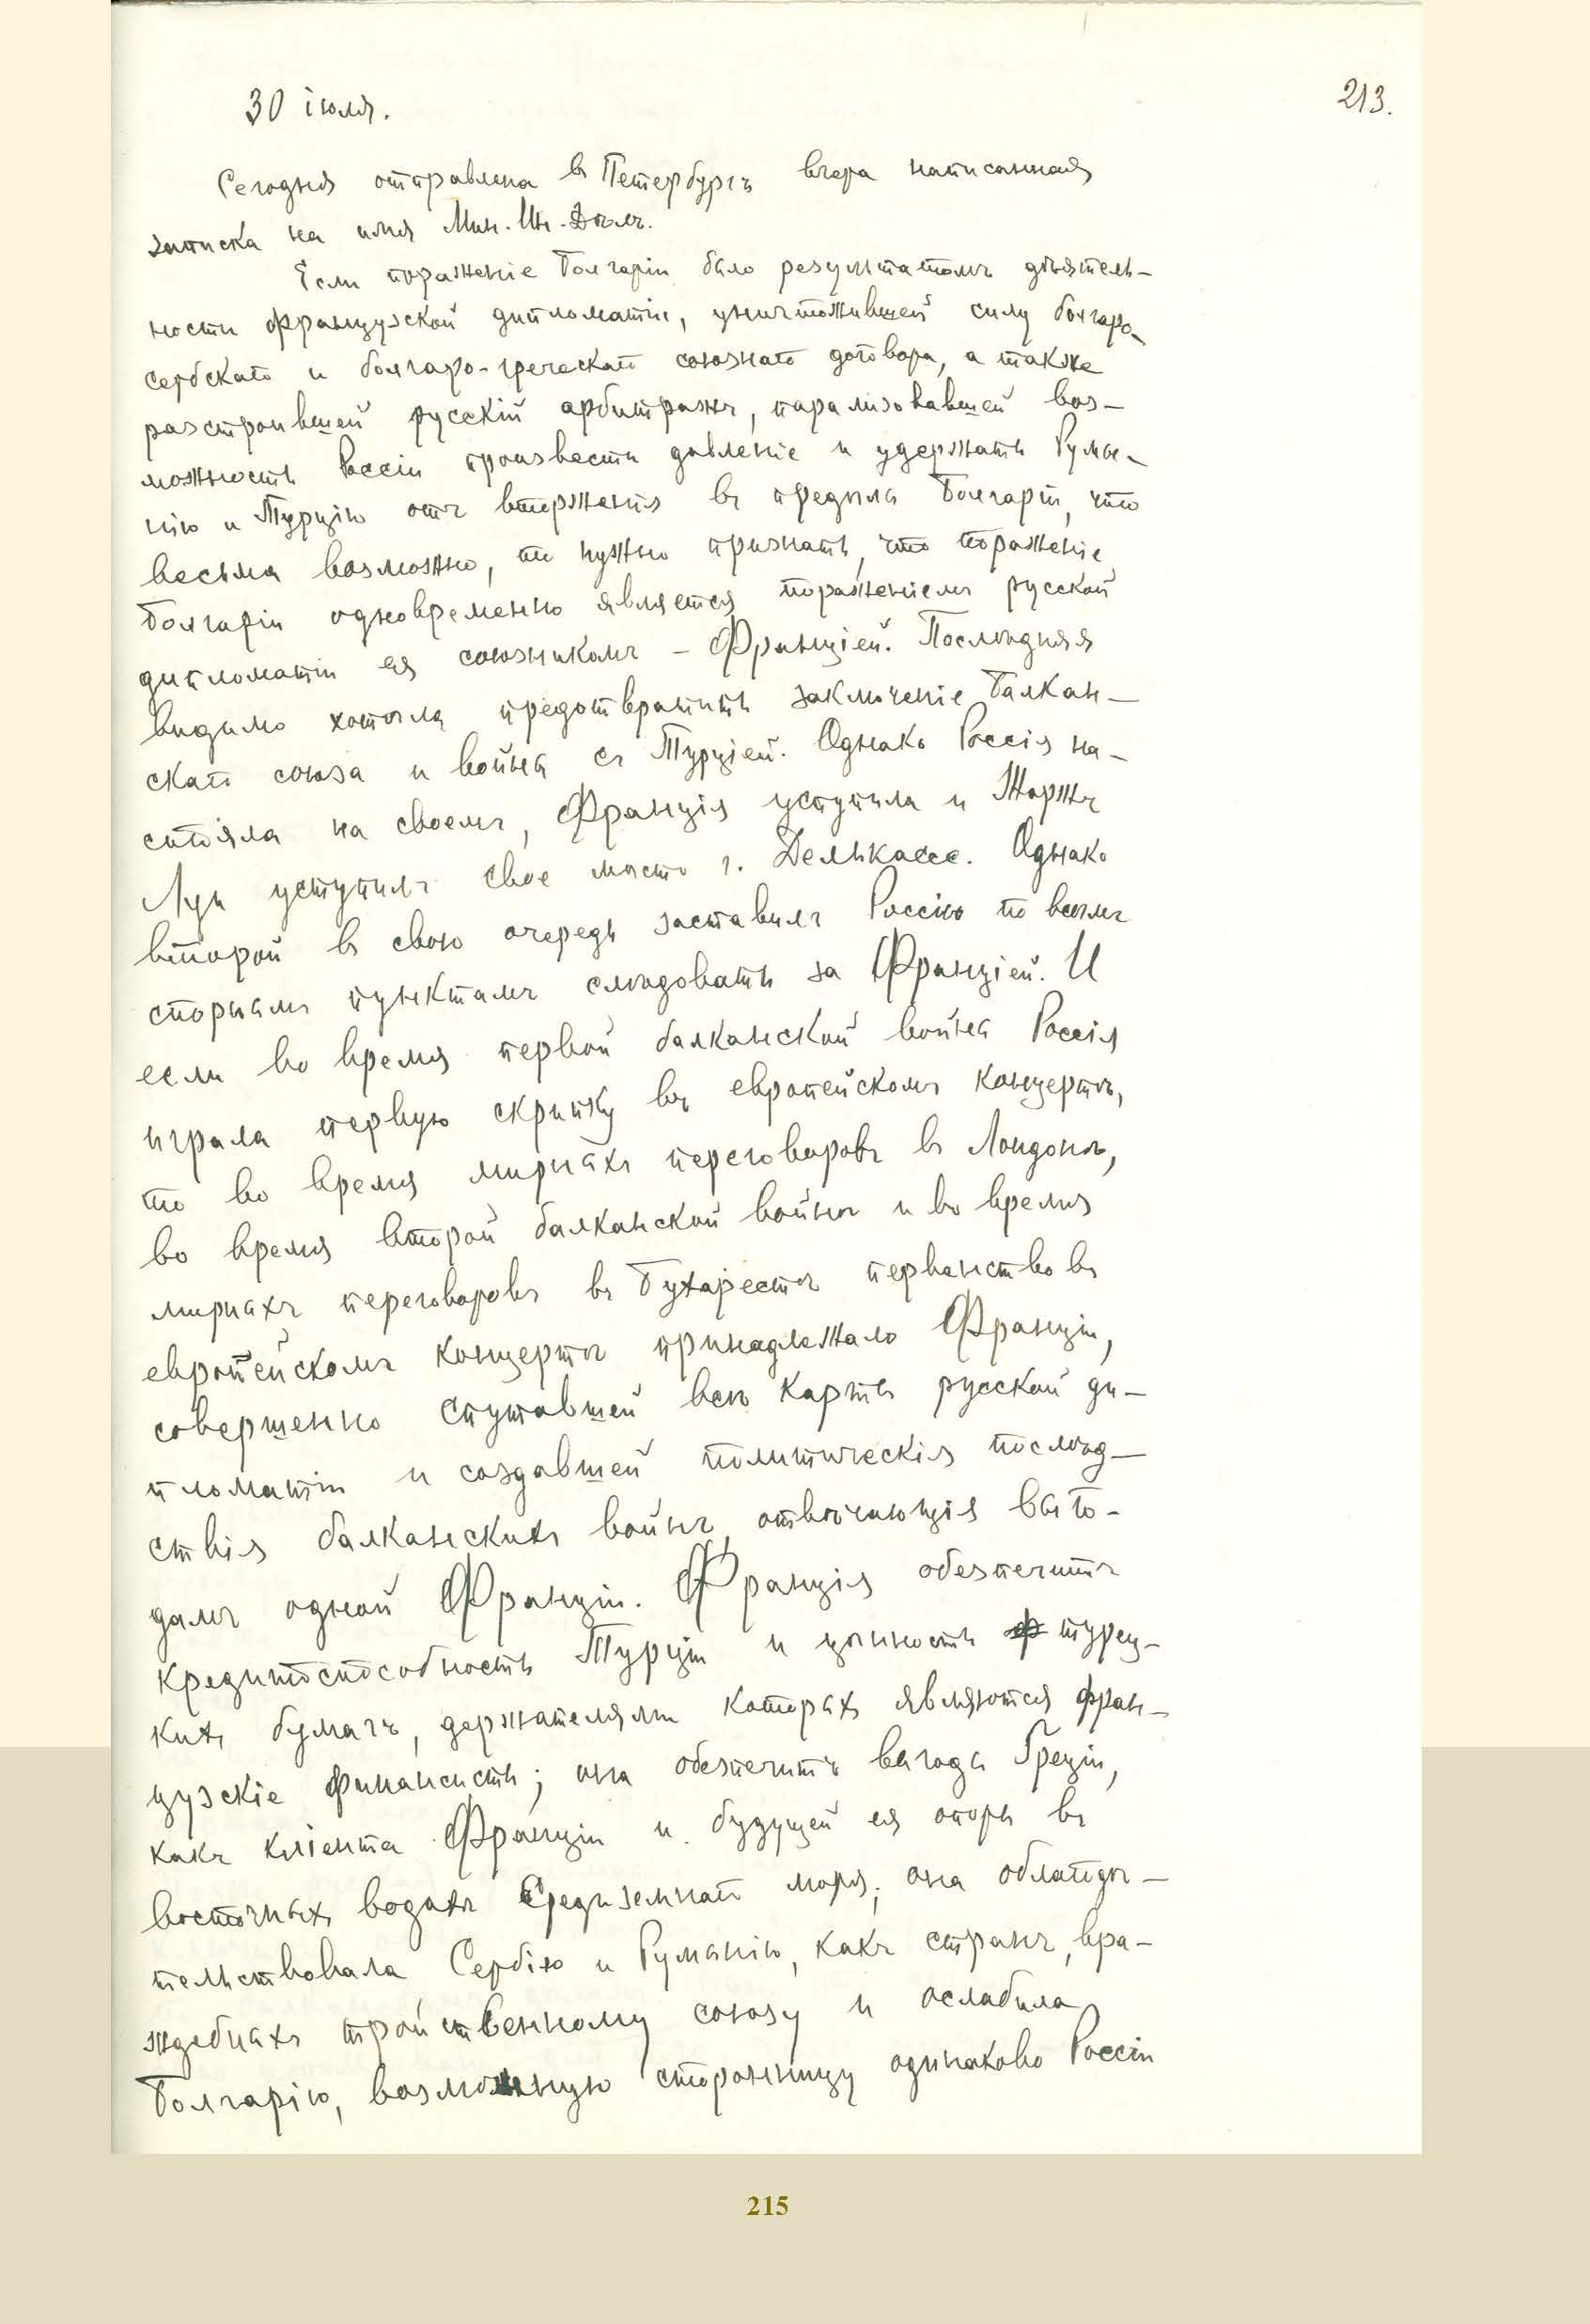 213.
30 iюля.
Сегодня отправлена в Петербургъ вчера написанная
записка на имя Мин. Ин. Дѣлъ.
Если пораженіе Болгаріи было результатомъ дѣятель-
ности французской дипломатіи, уничтожившей силу болгаро-
сербскаго и болгаро-греческаго союзнаго договора, а также
разстроившей русскій арбитражъ, парализовавшей воз-
можность Россіи произвести давленіе и удержать Румы-
нію и Турцію отъ вторженія въ предѣлы Болгаріи, что
весьма возможно, то нужно признать, что пораженіе
Болгаріи одновременно является пораженіемъ русской
дипломатіи ея союзникомъ – Франціей. Послѣдняя
видимо хотѣла предотвратить заключеніе Балкан-
скаго союза и войны съ Турціей. Однако Россія на-
стояла на своемъ, Франція уступила и Жоржъ
Луи уступилъ свое мѣсто г. Делькассе. Однако
второй в свою очередь заставилъ Россію по всѣмъ
спорнымъ пунктамъ слѣдовать за Франціей. И
если во время первой балканской войны Россія
играла первую скрипку въ европейскомъ концертѣ,
то во время мирныхъ переговоровъ в Лондонѣ,
во время второй балканской войны и во время
мирныхъ переговоровъ въ Бухарестѣ первенство въ
европейскомъ концертѣ принадлежало Франціи,
совершенно спутавшей всѣ карты русской ди-
пломатіи и создавшей политическія послѣд-
ствія балканскихъ войнъ, отвѣчающія выго-
дамъ одной Франціи. Франція обезпечитъ
кредитоспособность Турціи и цѣнность ф турец-
кихъ бумагъ, держателями которыхъ являются фран-
цузскіе финансисты; она обезпечитъ выгоды Греціи,
какъ кліента Франціи и будущей ея опоры въ
восточныхъ водахъ Средиземнаго моря; она облагодѣ-
тельствовала Сербію и Румынію, какъ странъ, вра-
ждебныхъ тройственному союзу и ослабила
Болгарію, возможную сторонницу одинаково Россіи
215